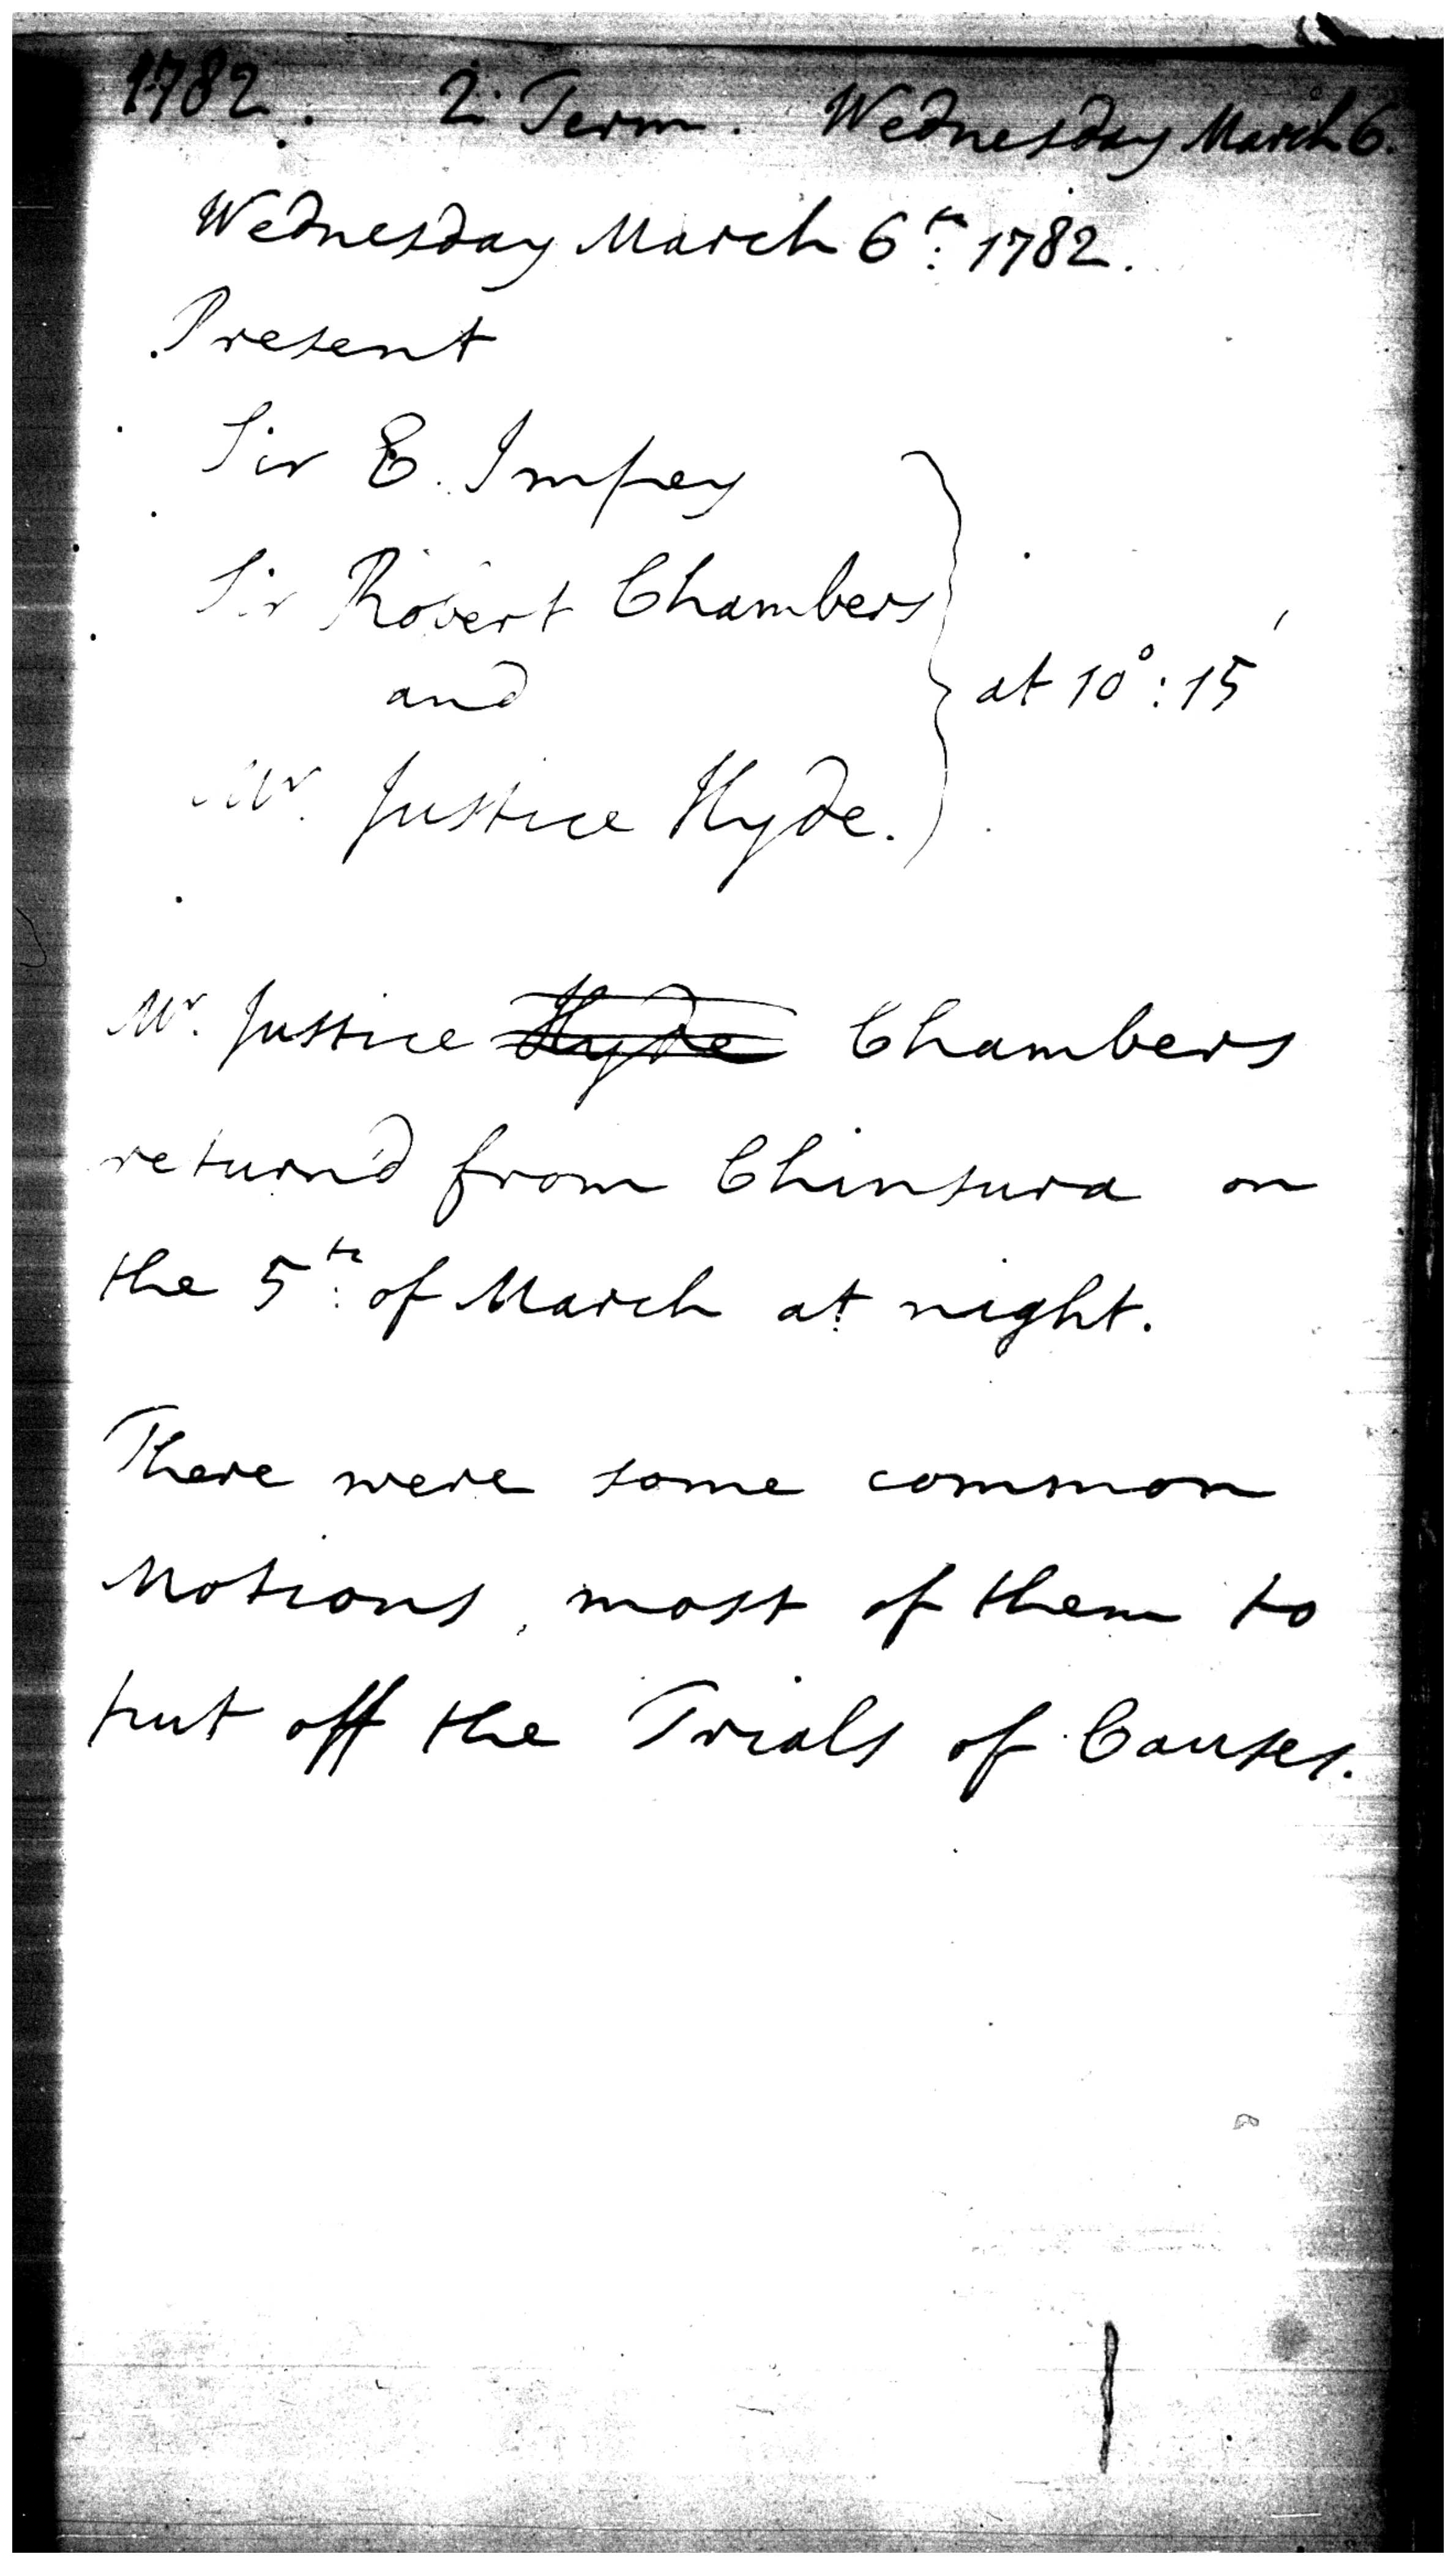 1782. 2. Term. Wednesday March 6.
Wednesday March 6th. 1782.
Present
Sir E. Impey
Sir Robert Chambers
and
at 10°: 15'
Mr. Justice Hyde.
Mr. Justice Hyde Chambers
return'd from Chinsura on
the 5th. of March at night.
There were some common
Motions, most of them to
put off the Trials of Causes.